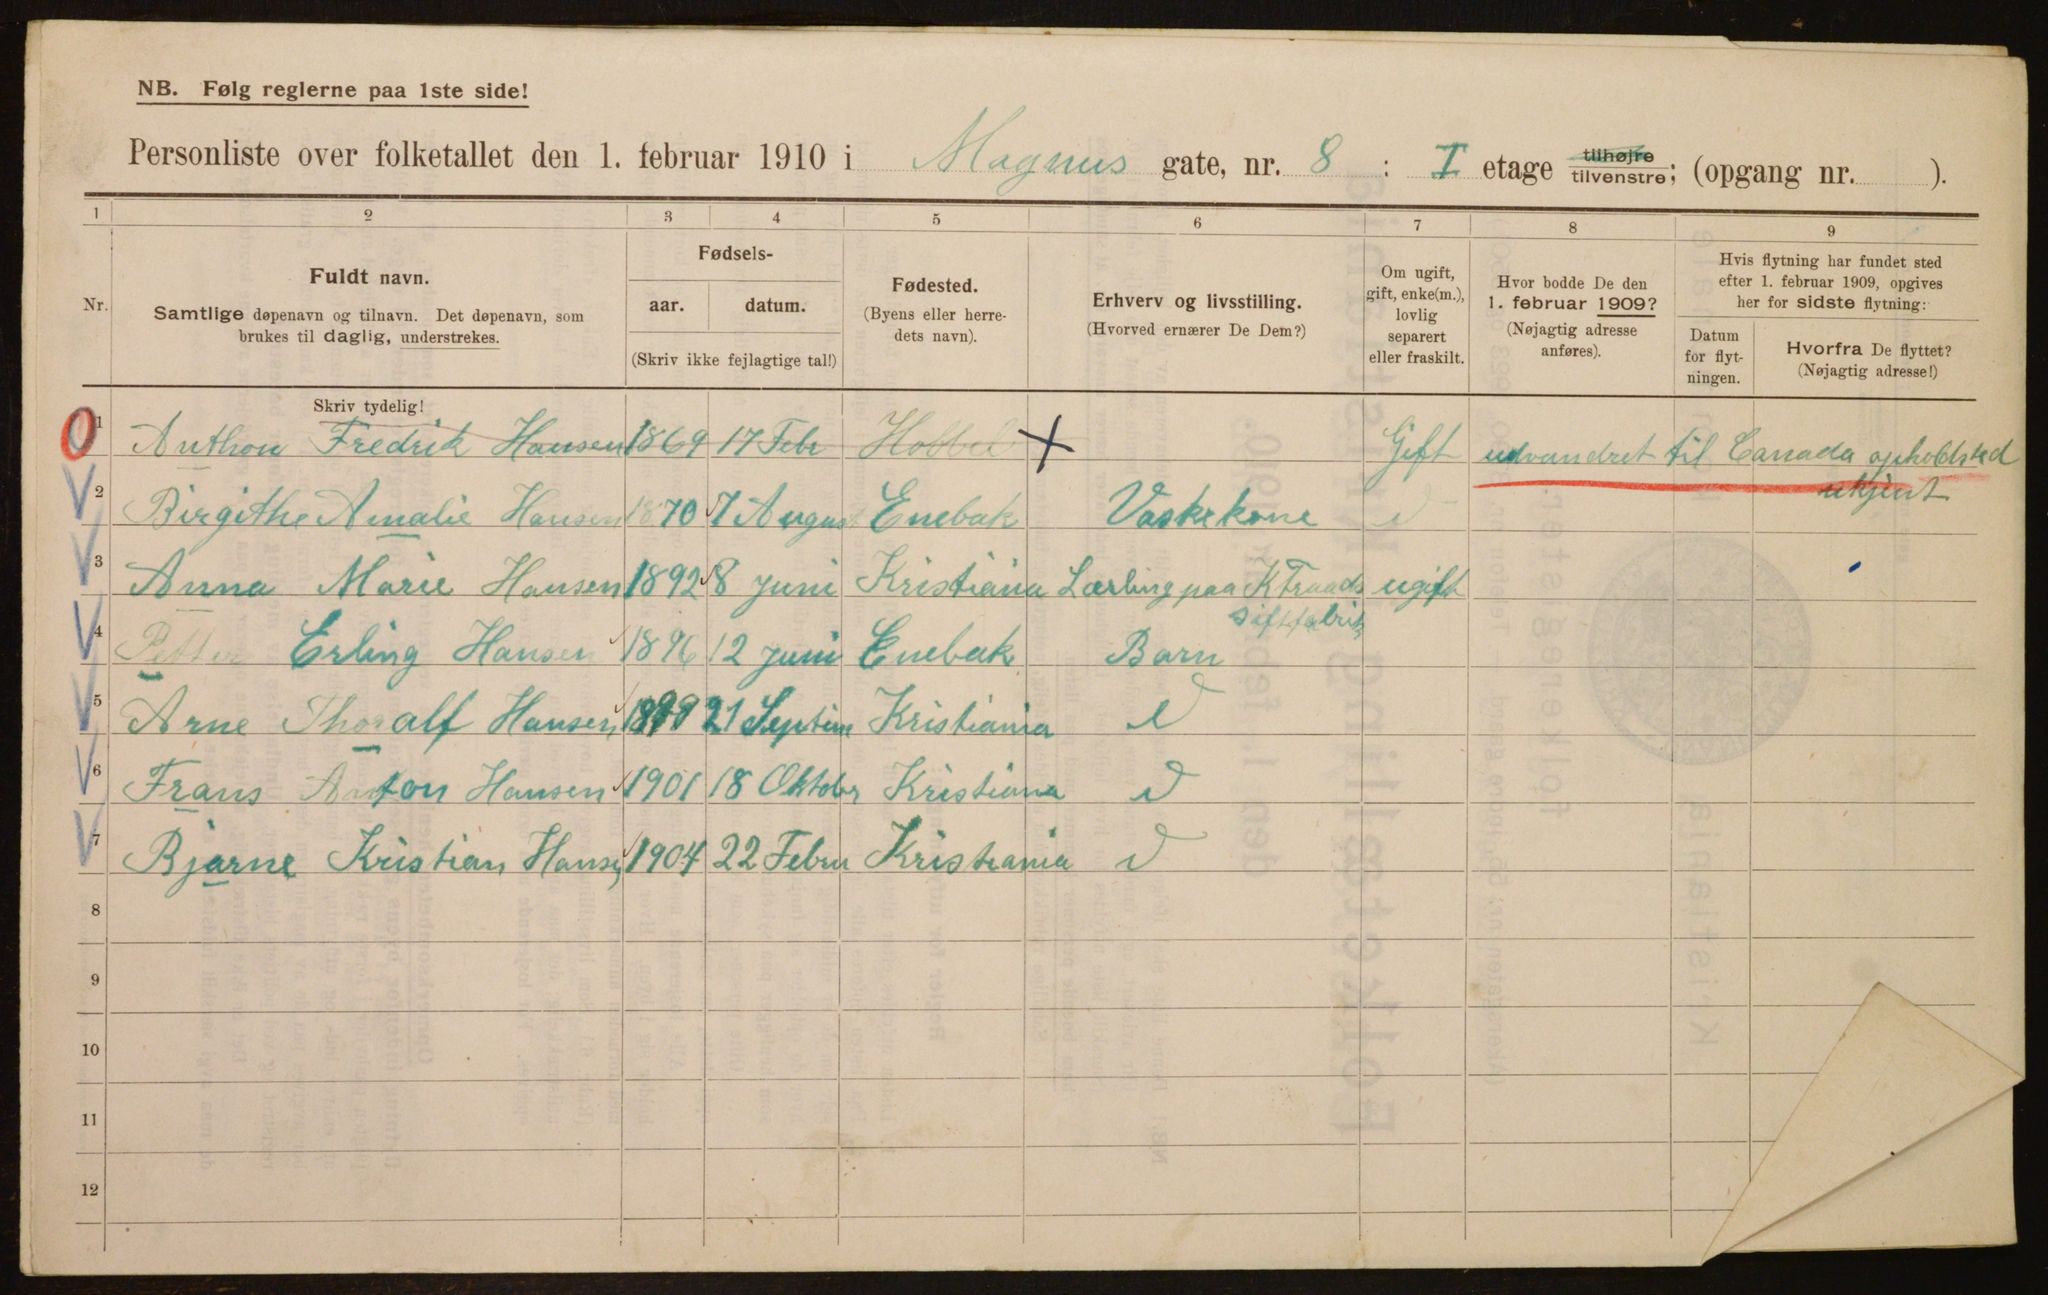 NB. Følg reglerne paa 1ste side!
Personliste over folketallet den 1. februar 1910 i Magnus gate, nr. 8 : I etage tilhøjre tilvenstre; (opgang nr. ).
1 2 3 4 5 6 7 8 9
Nr.
Fuldt navn.
Samtlige døpenavn og tilnavn. Det døpenavn, som
brukes til daglig, understrekes.
Fødsels-
aar. datum.
(Skriv ikke fejlagtige tal!)
Fødested.
(Byens eller herre-
dets navn).
Erhverv og livsstilling.
(Hvorved ernærer De Dem?)
Om ugift,
gift, enke(m.),
lovlig
separert
eller fraskilt.
Hvor bodde De den
1. februar 1909?
(Nøjagtig adresse
anføres).
Hvis flytning har fundet sted
efter 1. februar 1909, opgives
her for sidste flytning:
Datum
for flyt-
ningen.
Hvorfra De flyttet?
(Nøjagtig adresse!)
Skriv tydelig!
1 Anthon Fredrik Hansen 1869 17 Febr Hobbel X Gift udvandret til Canada opholdsted
ukjent
2 Birgithe Amalie Hansen 1870 7 August Enebak Vaskekone
3 Anna Marie Hansen 1892 8 juni Kristiania Lærling paa K Traads ugift
4 Petter Erling Hansen 1896 12 juni Enebak Barn
5 Arne Thoralf Hansen 1899 21 Septem Kristiania
6 Frans Anton Hansen 1901 18 Oktober Kristiana
7 Bjarne Kristian Hansen 1904 22 Febru Kristiania
8
9
10
11
12